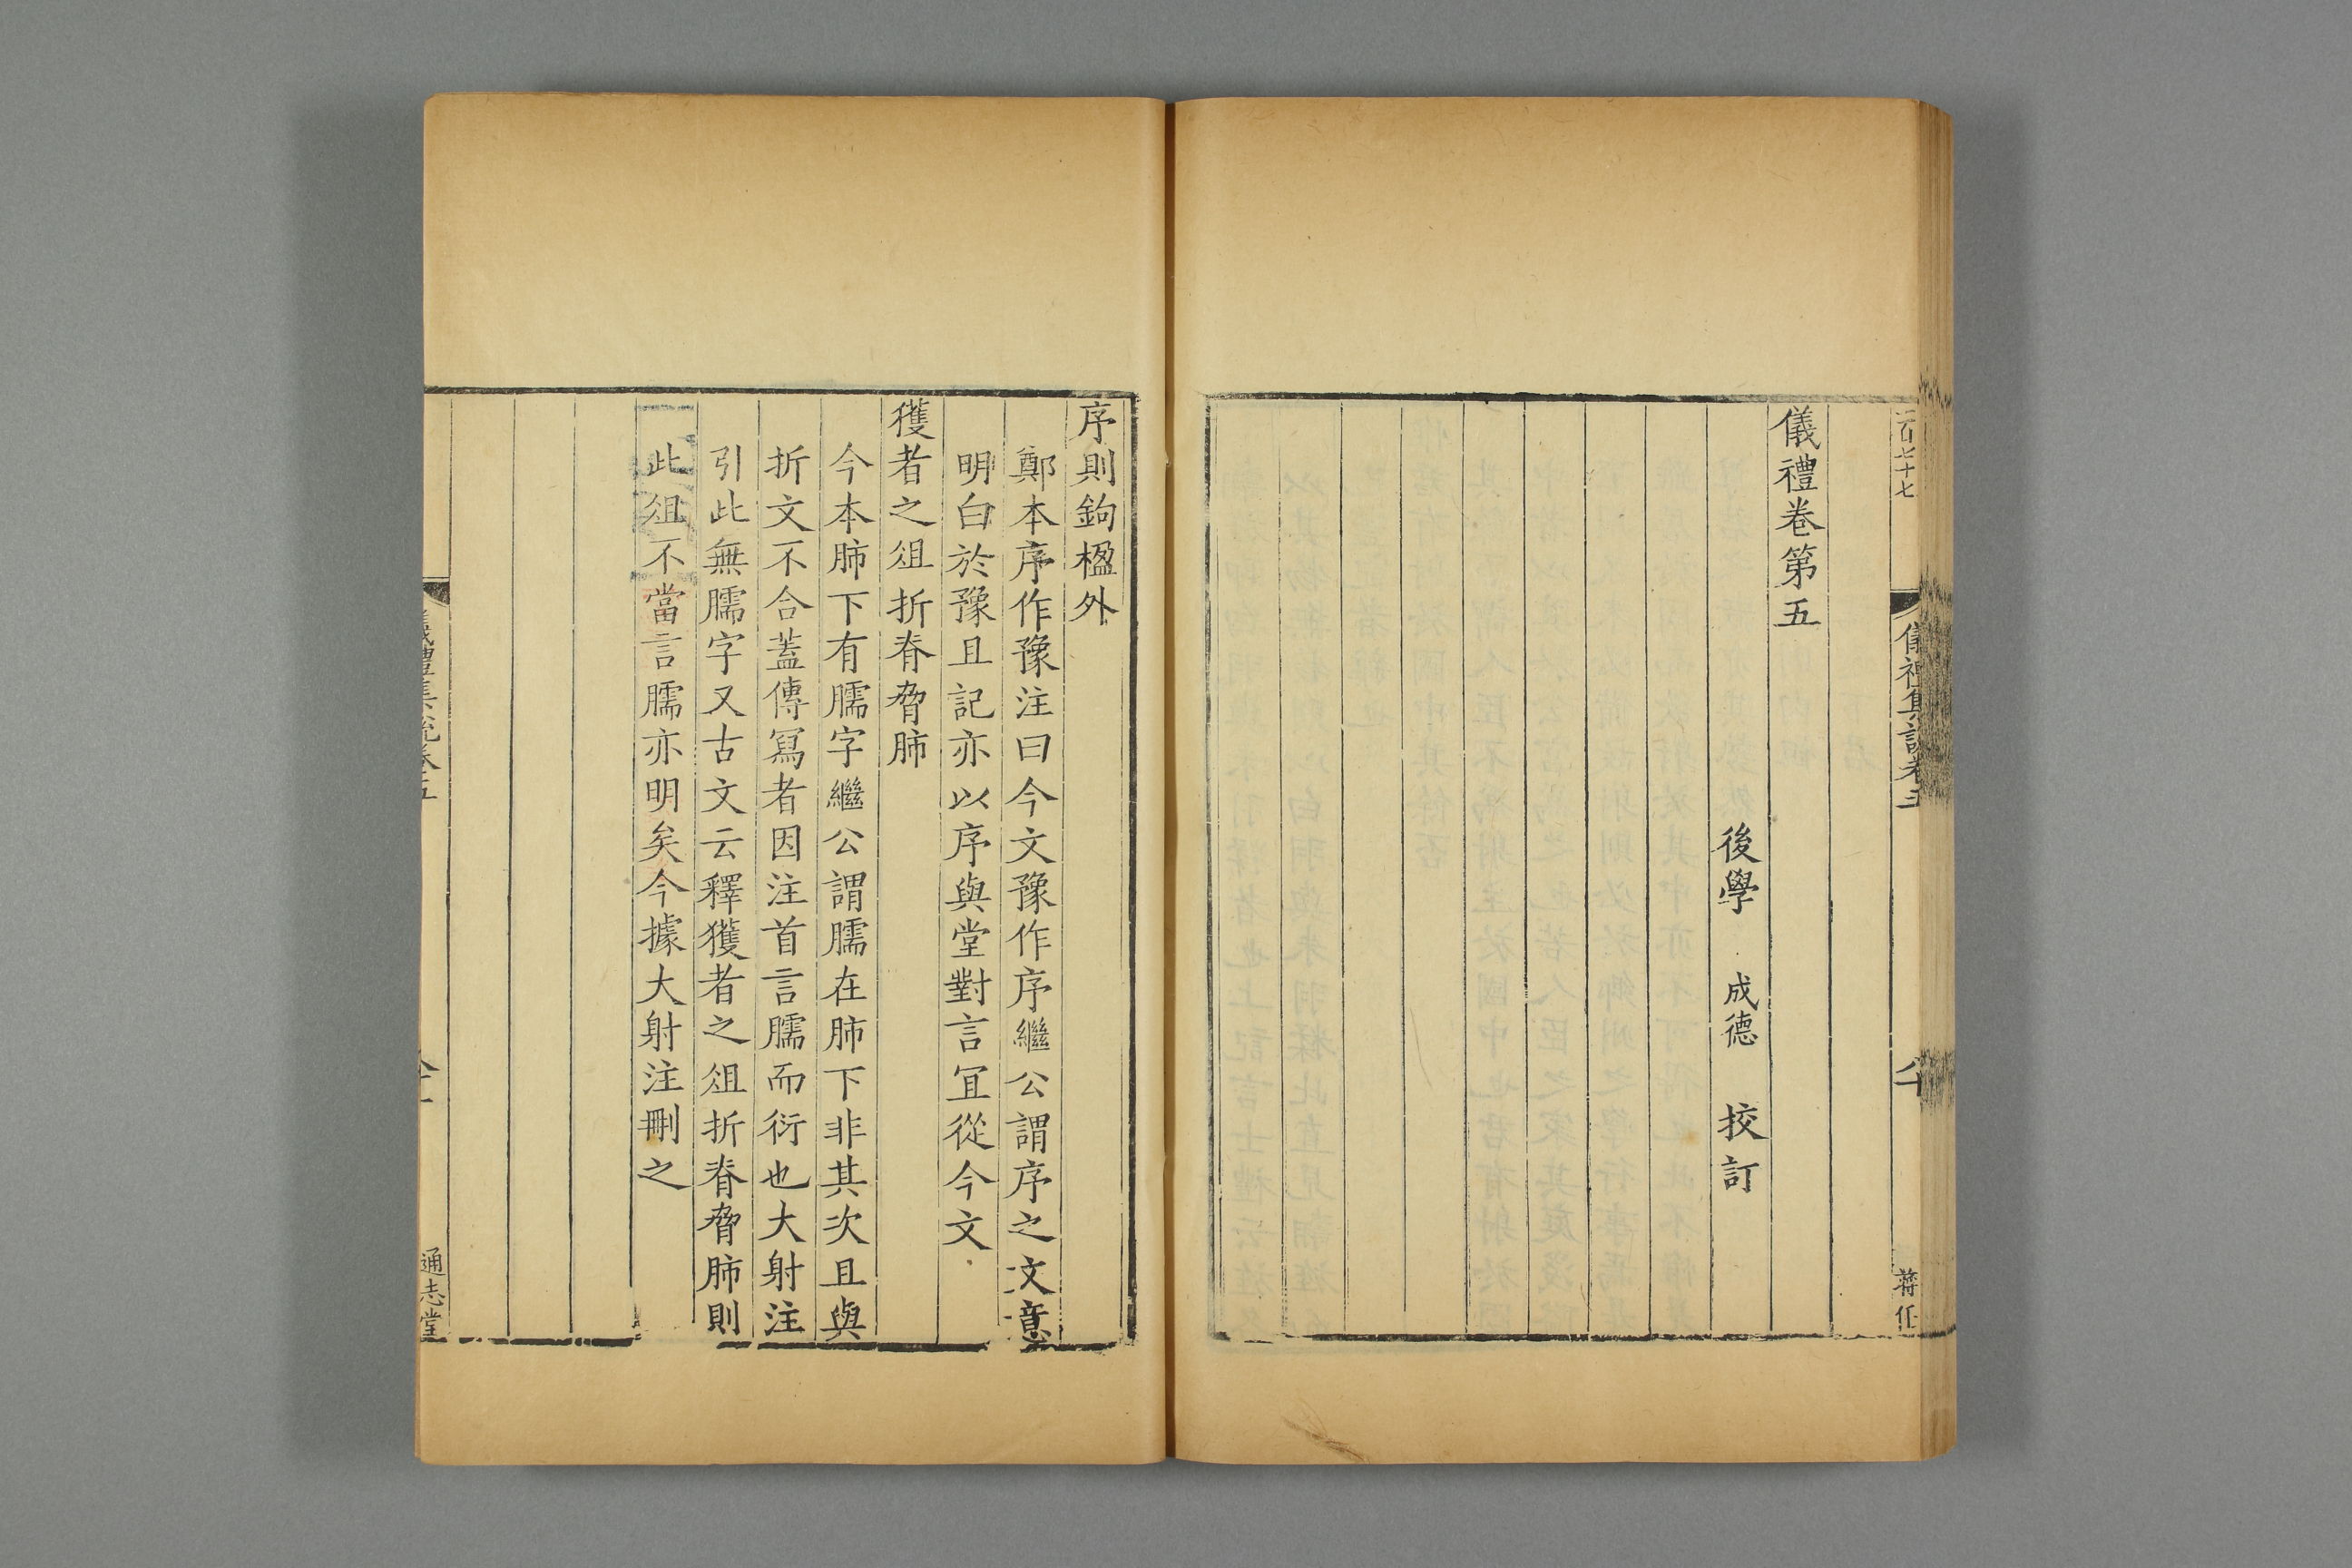 二百七十七
儀禮集說卷五
八十
蔣任
儀禮卷第五
後學 成德 挍訂
序則鉤楹外
鄭本序作豫注曰今文豫作序繼公謂序之文意
明白於豫且記亦以序與堂對言冝從今文
獲者之俎折脊脅肺
今本肺下有臑字繼公謂臑在肺下非其次且與
折文不合蓋傳冩者因注首言臑而衍也大射注
引此無臑字又古文云釋獲者之俎折脊脅肺則
此俎不當言臑亦明矣今據大射注刪之
儀禮集說卷五
通志堂